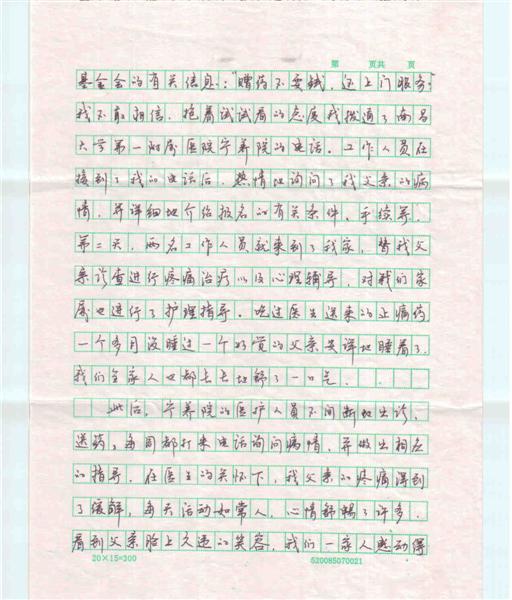 第 页共 页
基金会的有关信息："赠药不要钱，还上门服务"
我不敢相信，抱着试试看的态度我拨通了南昌
大学第一附属医院宁养院的电话。工作人员在
接到了我的电话后，热情地询问了我父亲的病
情，并详细地介绍报名的有关条件、手续等。
第二天，两名工作人员就来到了我家，替我父
亲诊查进行疼痛治疗以及心理辅导，对我们家
属也进行了护理指导。吃过医生送来的止痛药
一个多月没睡过一个好觉的父亲安详地睡着了，
我们全家人也都长长地舒了一口气。
此后，宁养院的医护人员不间断地出诊、
送药，每周都打来电话询问病情，并做出相应
的指导，在医生的关怀下，我父亲的疼痛得到
了缓解，每天活动如常人，心情舒畅了许多，
看到父亲脸上久违的笑容，我们一家人感动得
20×15=300 520085070021